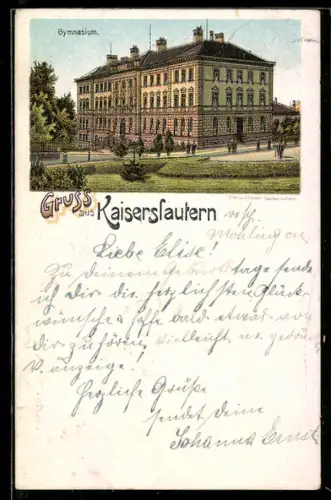 Gymnasium.
Gruss aus Kaiserslautern
Liebe Elise!
Zu deinem Geburtstage sende
ich Dir die herzlichsten Glück-
wünsche & hoffe bald etwas von
dir zu hören, vielleicht
V. anzeige!
Herzliche Grüße
sendet deine
Johanna Ernst